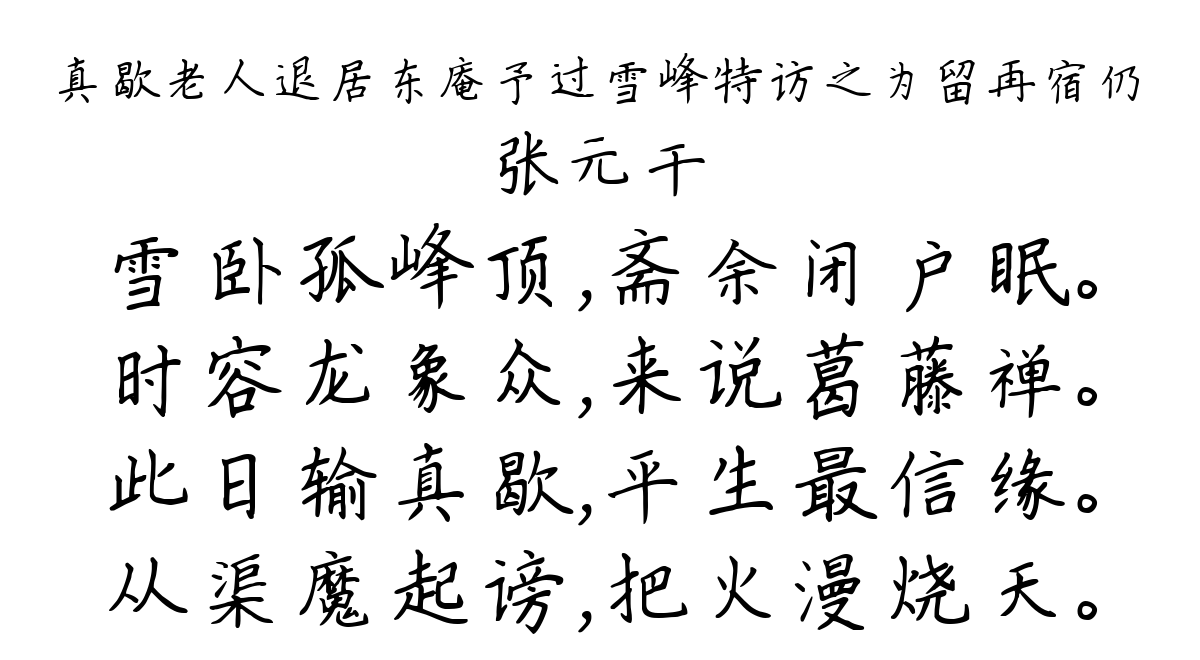 真歇老人退居东庵予过雪峰特访之为留再宿仍
张元干
雪卧孤峰顶,斋余闭户眠。
时容龙象众,来说葛藤禅。
此日输真歇,平生最信缘。
从渠魔起谤,把火漫烧天。